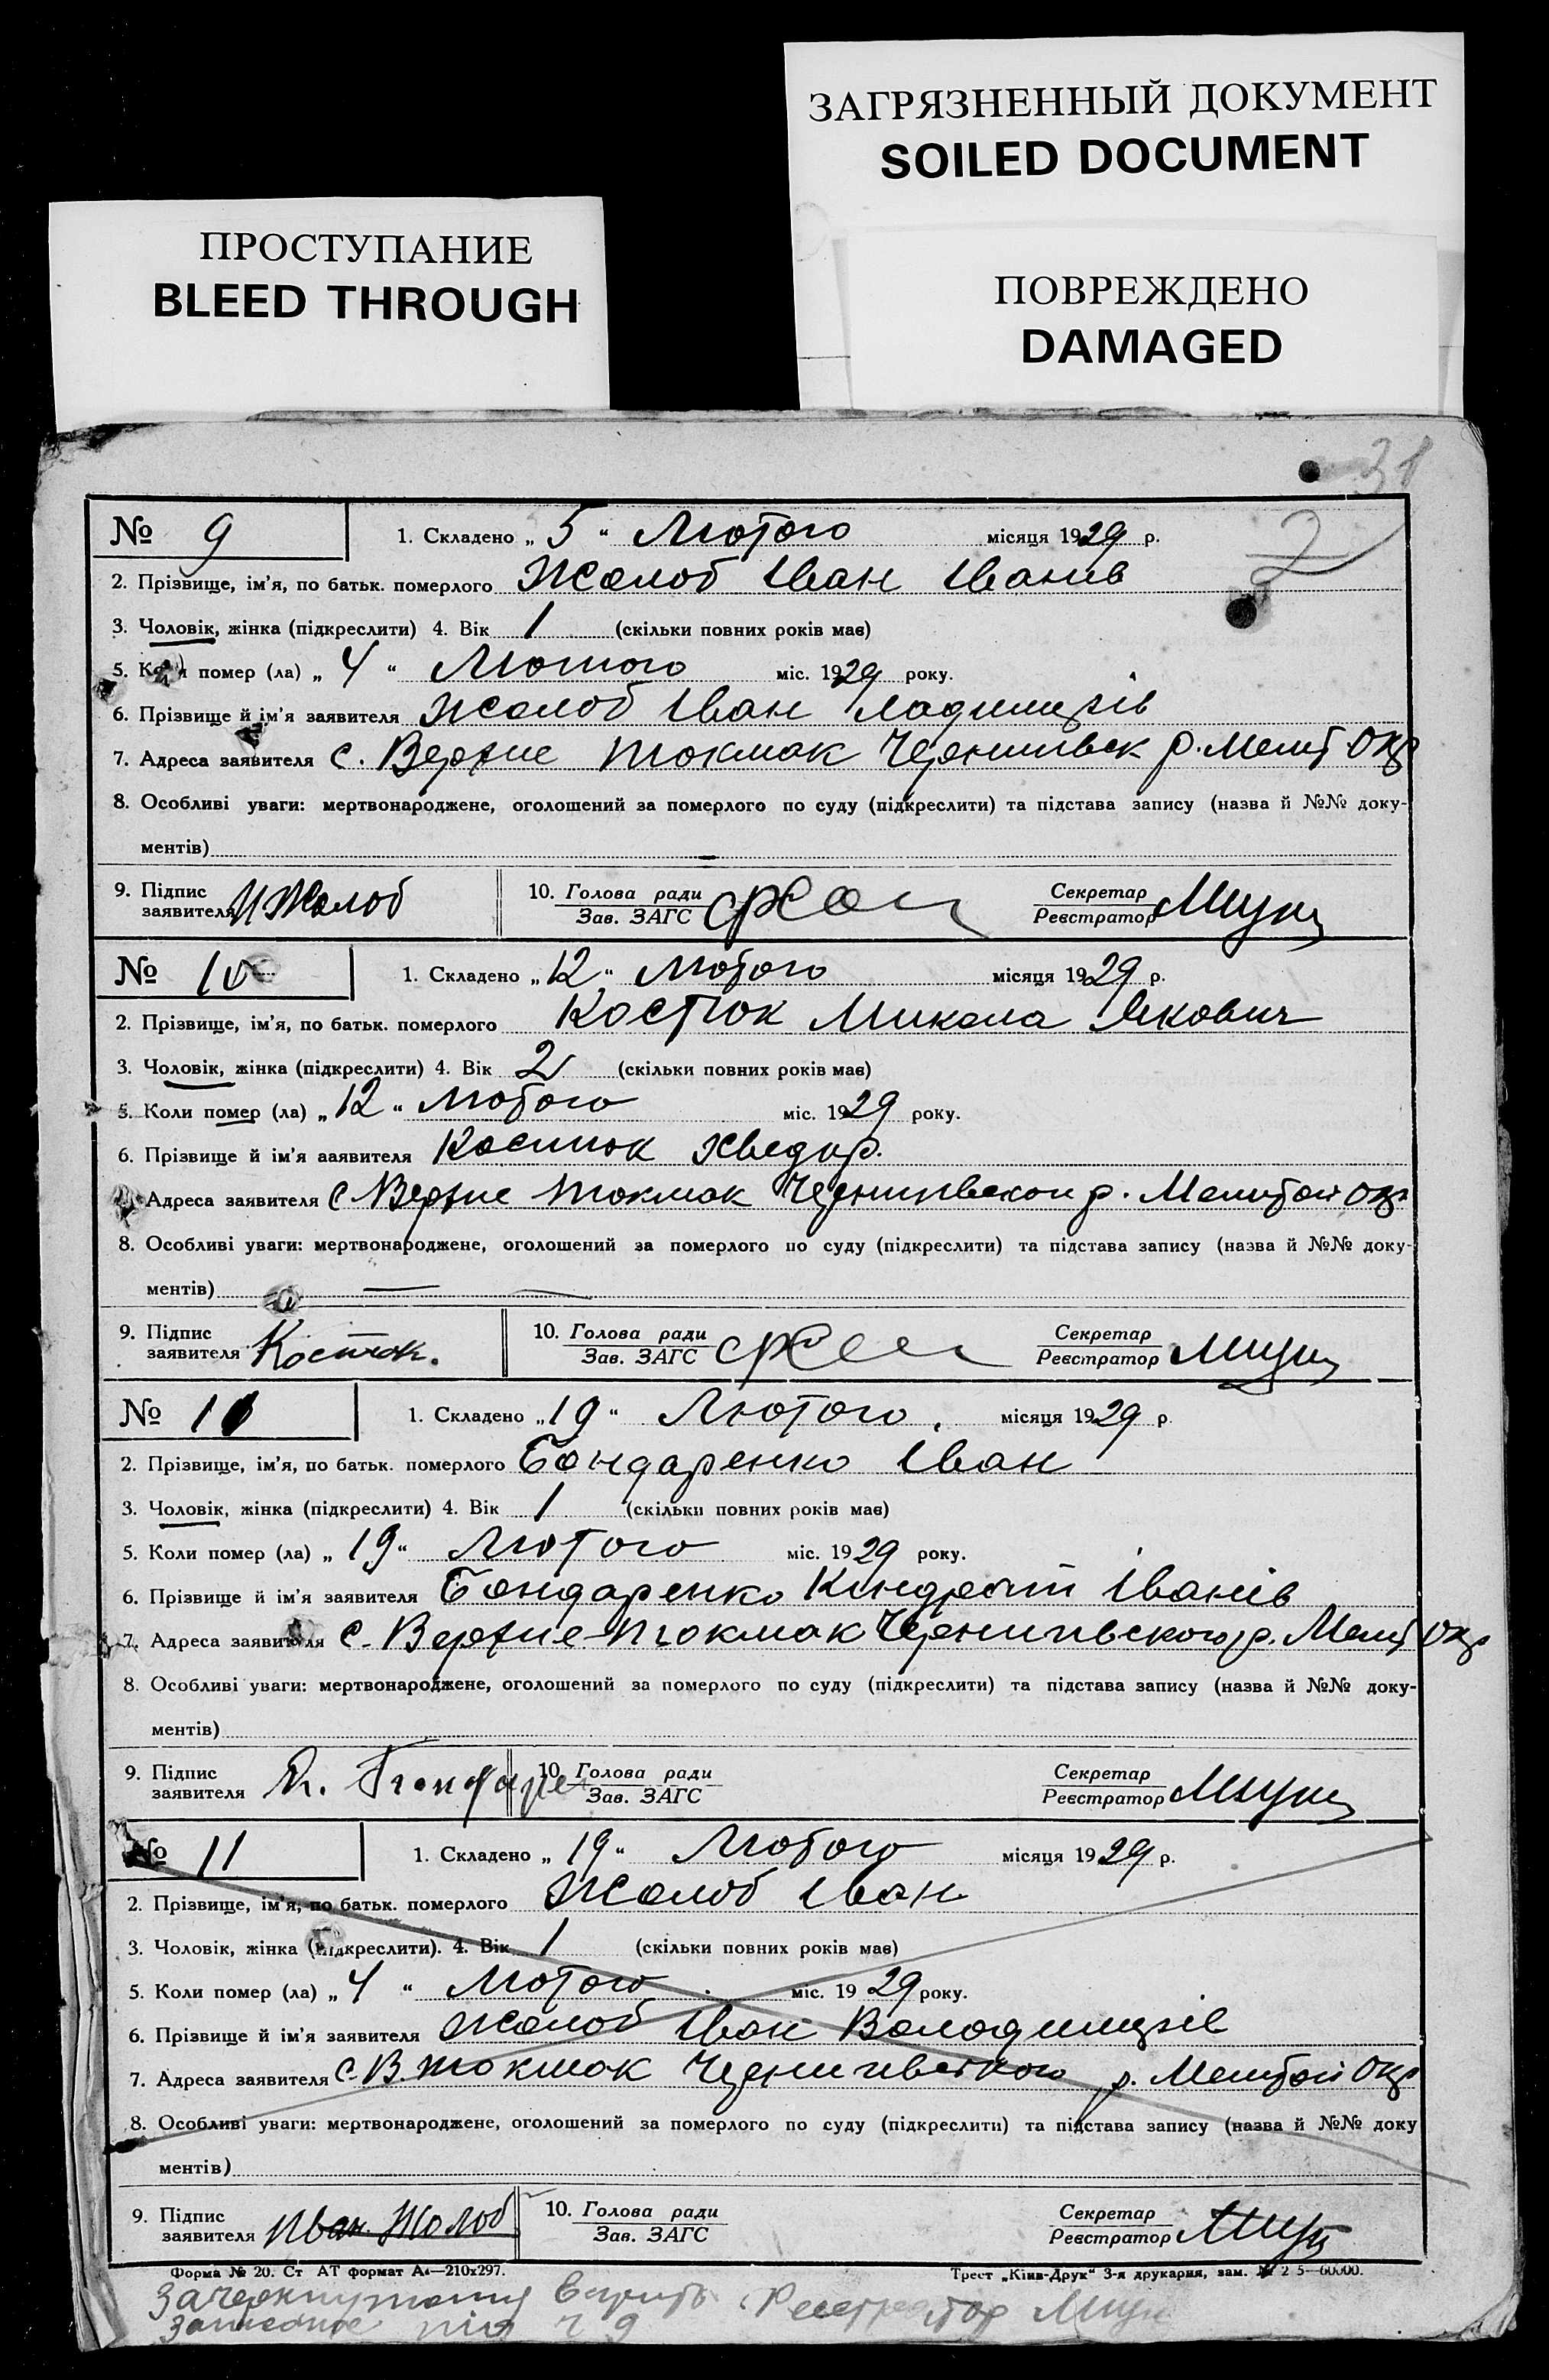 ЗАГРЯЗНЕННЫЙ ДОКУМЕНТ
SOILED DOCUMENT
ПРОСТУПАНИЕ
BLEED THROUGH
ПОВРЕЖДЕНО
DAMAGED
31
2
№ 9 1. Складено „ 5 “ Лютого місяця 1929 р.
2. Прізвище, ім'я, по батьк. померлого Жолоб Іван Іванів
3. Чоловік, жінка (підкреслити) 4. Вік 1 (скільки повних років має)
5. Коли помер (ла) „ 4 “ Лютого міс. 1929 року.
6. Прізвище й ім'я заявителя Жолоб Іван
7. Адреса заявителя с. Верхне Токмак р. Меліт Окр
8. Особливі уваги: мертвонароджене, оголошений за померлого по суду (підкреслити) та підстава запису (назва й №№ доку-
ментів)
9. Підпис заявителя И Жолоб 10. Голова ради Зав. ЗАГС Секретар Реєстратор
№ 10 1. Складено „ 12 “ Лютого місяця 1929 р.
2. Прізвище, ім'я, по батьк. померлого Костюк Микола Якович
3. Чоловік, жінка (підкреслити) 4. Вік 2 (скільки повних років має)
5. Коли помер (ла) „ 12 “ Лютого міс. 1929 року.
6. Прізвище й ім'я заявителя Костюк Хведір.
Адреса заявителя с Верхне Токмак р. Окр
8. Особливі уваги: мертвонароджене, оголошений за померлого по суду (підкреслити) та підстава запису (назва й №№ доку-
ментів) —
9. Підпис заявителя Костюк. 10. Голова ради Зав. ЗАГС Секретар Реєстратор
№ 10 1. Складено „ 19 “ Лютого місяця 1929 р.
2. Прізвище, ім'я, по батьк. померлого Бондаренко Іван
3. Чоловік, жінка (підкреслити) 4. Вік 1 (скільки повних років має)
5. Коли помер (ла) „ 19 “ Лютого міс. 1929 року.
6. Прізвище й ім'я заявителя Бондаренко Кіндрат Іванів
7. Адреса заявителя с. Верхне-Токмак Чернигівского р. Меліт Окр
8. Особливі уваги: мертвонароджене, оголошений за померлого по суду (підкреслити) та підстава запису (назва й №№ доку-
ментів)
9. Підпис заявителя К. Бондаре 10. Голова ради Зав. ЗАГС Секретар Реєстратор
№ 11 1. Складено „ 19 “ Лютого місяця 1929 р.
2. Прізвище, ім'я, по батьк. померлого Жолоб Іван
3. Чоловік, жінка (підкреслити). 4. Вік 1 (скільки повних років має)
5. Коли помер (ла) „ 4 “ Лютого міс. 1929 року.
6. Прізвище й ім'я заявителя Жолоб Іван Володимирів
7. Адреса заявителя с. В. Токмак Чернигівского р. Окр
8. Особливі уваги: мертвонароджене, оголошений за померлого по суду (підкреслити) та підстава запису (назва й №№ доку
ментів)
9. Підпис заявителя Иван Жолоб 10. Голова ради Зав. ЗАГС Секретар Реєстратор
Форма № 20. Ст АТ формат А4—210х297. Трест „Київ-Друк“ 3-я друкарня, зам. № 2 5—60000.
Реєстратор
9